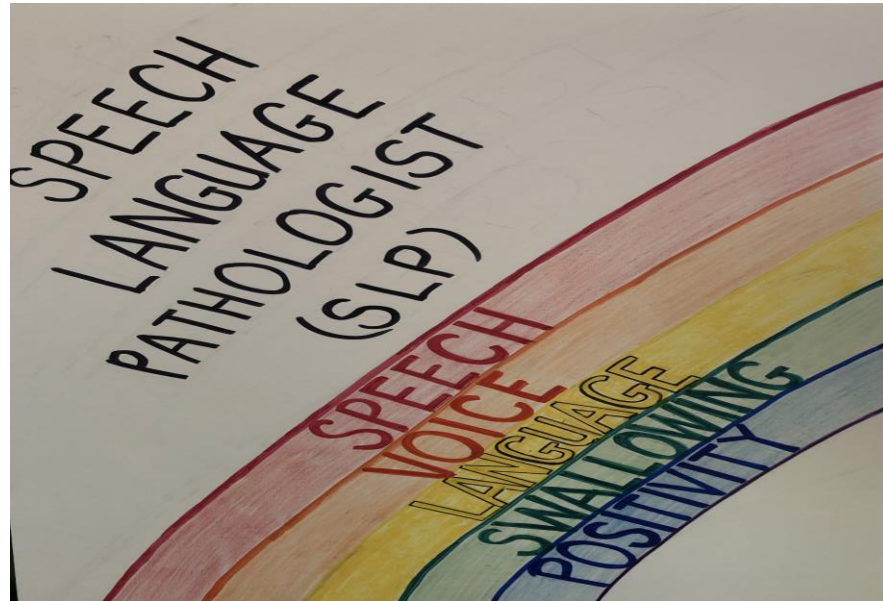 SPEECH
LANGUAGE
PATHOLOGIST
(SLP)
SPEECH
VOICE
LANGUAGE
SWALLOWING
POSITIVITY